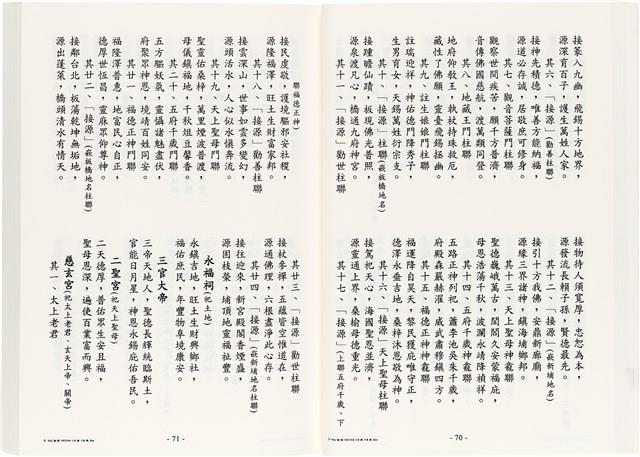 接篆入九幽,飛錫十方地界,
源深育百子,護生萬姓人家。
其六、「接源」(勸善柱聯)
接神先積德,唯善方能納福,
源道必存誠,居敬庶可修身。
其七、觀音菩薩門柱聯
觀察世間疾苦,願千方普濟,
音傳佛國慈航,渡萬類同登。
其八、地藏王門柱聯
地府仰敎王,執杖持珠救厄,
藏性了佛願,靈臺飛錫拯幽。
其九、註生娘娘門柱聯
註瑞迎祥,神佑德門降秀子,
生男育女,天錫萬姓衍宗支。
其十、「接源」柱聯(嵌板橋地名)
接踵瞻仙蹟,板現佛光普照,
源泉渡凡心,橋通九府神宮。
其十一、「接源」勸世柱聯
接物待人須寬厚,忠恕為本,
源發流長賴子孫,賢德最先。
其十二、「接源」(嵌新埔地名柱聯)
接引十方我佛,安鼎新廊廟,
源緣三界諸神,鎮海埔鄉邦。
其十三、天上聖母神龕聯
聖德巍峨萬古,閭閻久安蒙福庇,
母恩浩蕩千秋,波瀾永靖降禎祥。
其十四、五府千歲神龕聯
五路正神列祀,蕭李池吳朱千歲,
府殿森嚴赫濯,威武肅穆鎮四方。
其十五、福德正神神龕聯
福運降自昊天,黎民獲庇唯守正,
德澤永垂吉地,桑梓沐恩敬為神。
其十六、「接源」天上聖母柱聯
接駕祀天心,海國聖恩並濟,
源靈通上界,桑榆母德重光。
其十七、「接源」(上聯五府千歲、下
- 70 -
聯福德正神)
接民虔敬,護境驅邪安社稷,
源隆福澤,旺土生財富家邦。
其十八、「接源」勸善柱聯
接雲深山,世事如雲多變幻,
源頭活水,人心似水愜奔流。
其十九、天上聖母門聯
聖靈佑桑梓,萬里煙波普渡,
母儀鎮福地,千秋俎豆馨香。
其二十、五府千歲門聯
五方驅妖氛,靈懾諸魅盡伏,
府聚眾神恩,境靖百姓同安。
其廿一、福德正神門聯
福隆澤普惠,地富民心自正,
德厚世恆昌,靈麻眾仰尊神。
其廿二、「接源」(嵌板橋地名柱聯)
接鄰台北,板蕩乾坤無垢地,
源出蓬萊,橋頭清水有情天。
其廿三、「接源」勸世柱聯
接杖參禪,五蘊皆空惟道在,
源通佛理,六根盡淨此心存。
其廿四、「接源」(嵌新埔地名柱聯)
接往迎來,新宮殿閣香煙盛,
源固枝榮,埔頂地靈福祉豐。
永福祠(祀土地)
永鎮吉地,旺土生財興鄉社,
福佑庶民,年豐物阜境康安。
三官大帝
三帝天地人,聖德長輝統臨斯土,
官能日月星,神恩永錫庇佑吾民。
二聖宮(祀天上聖母)
二天德厚,普佑眾生安且福,
聖母恩深,遍使百業富而興。
慈玄宮(祀太上老君、玄天上帝、關帝)
其一、太上老君
- 71 -